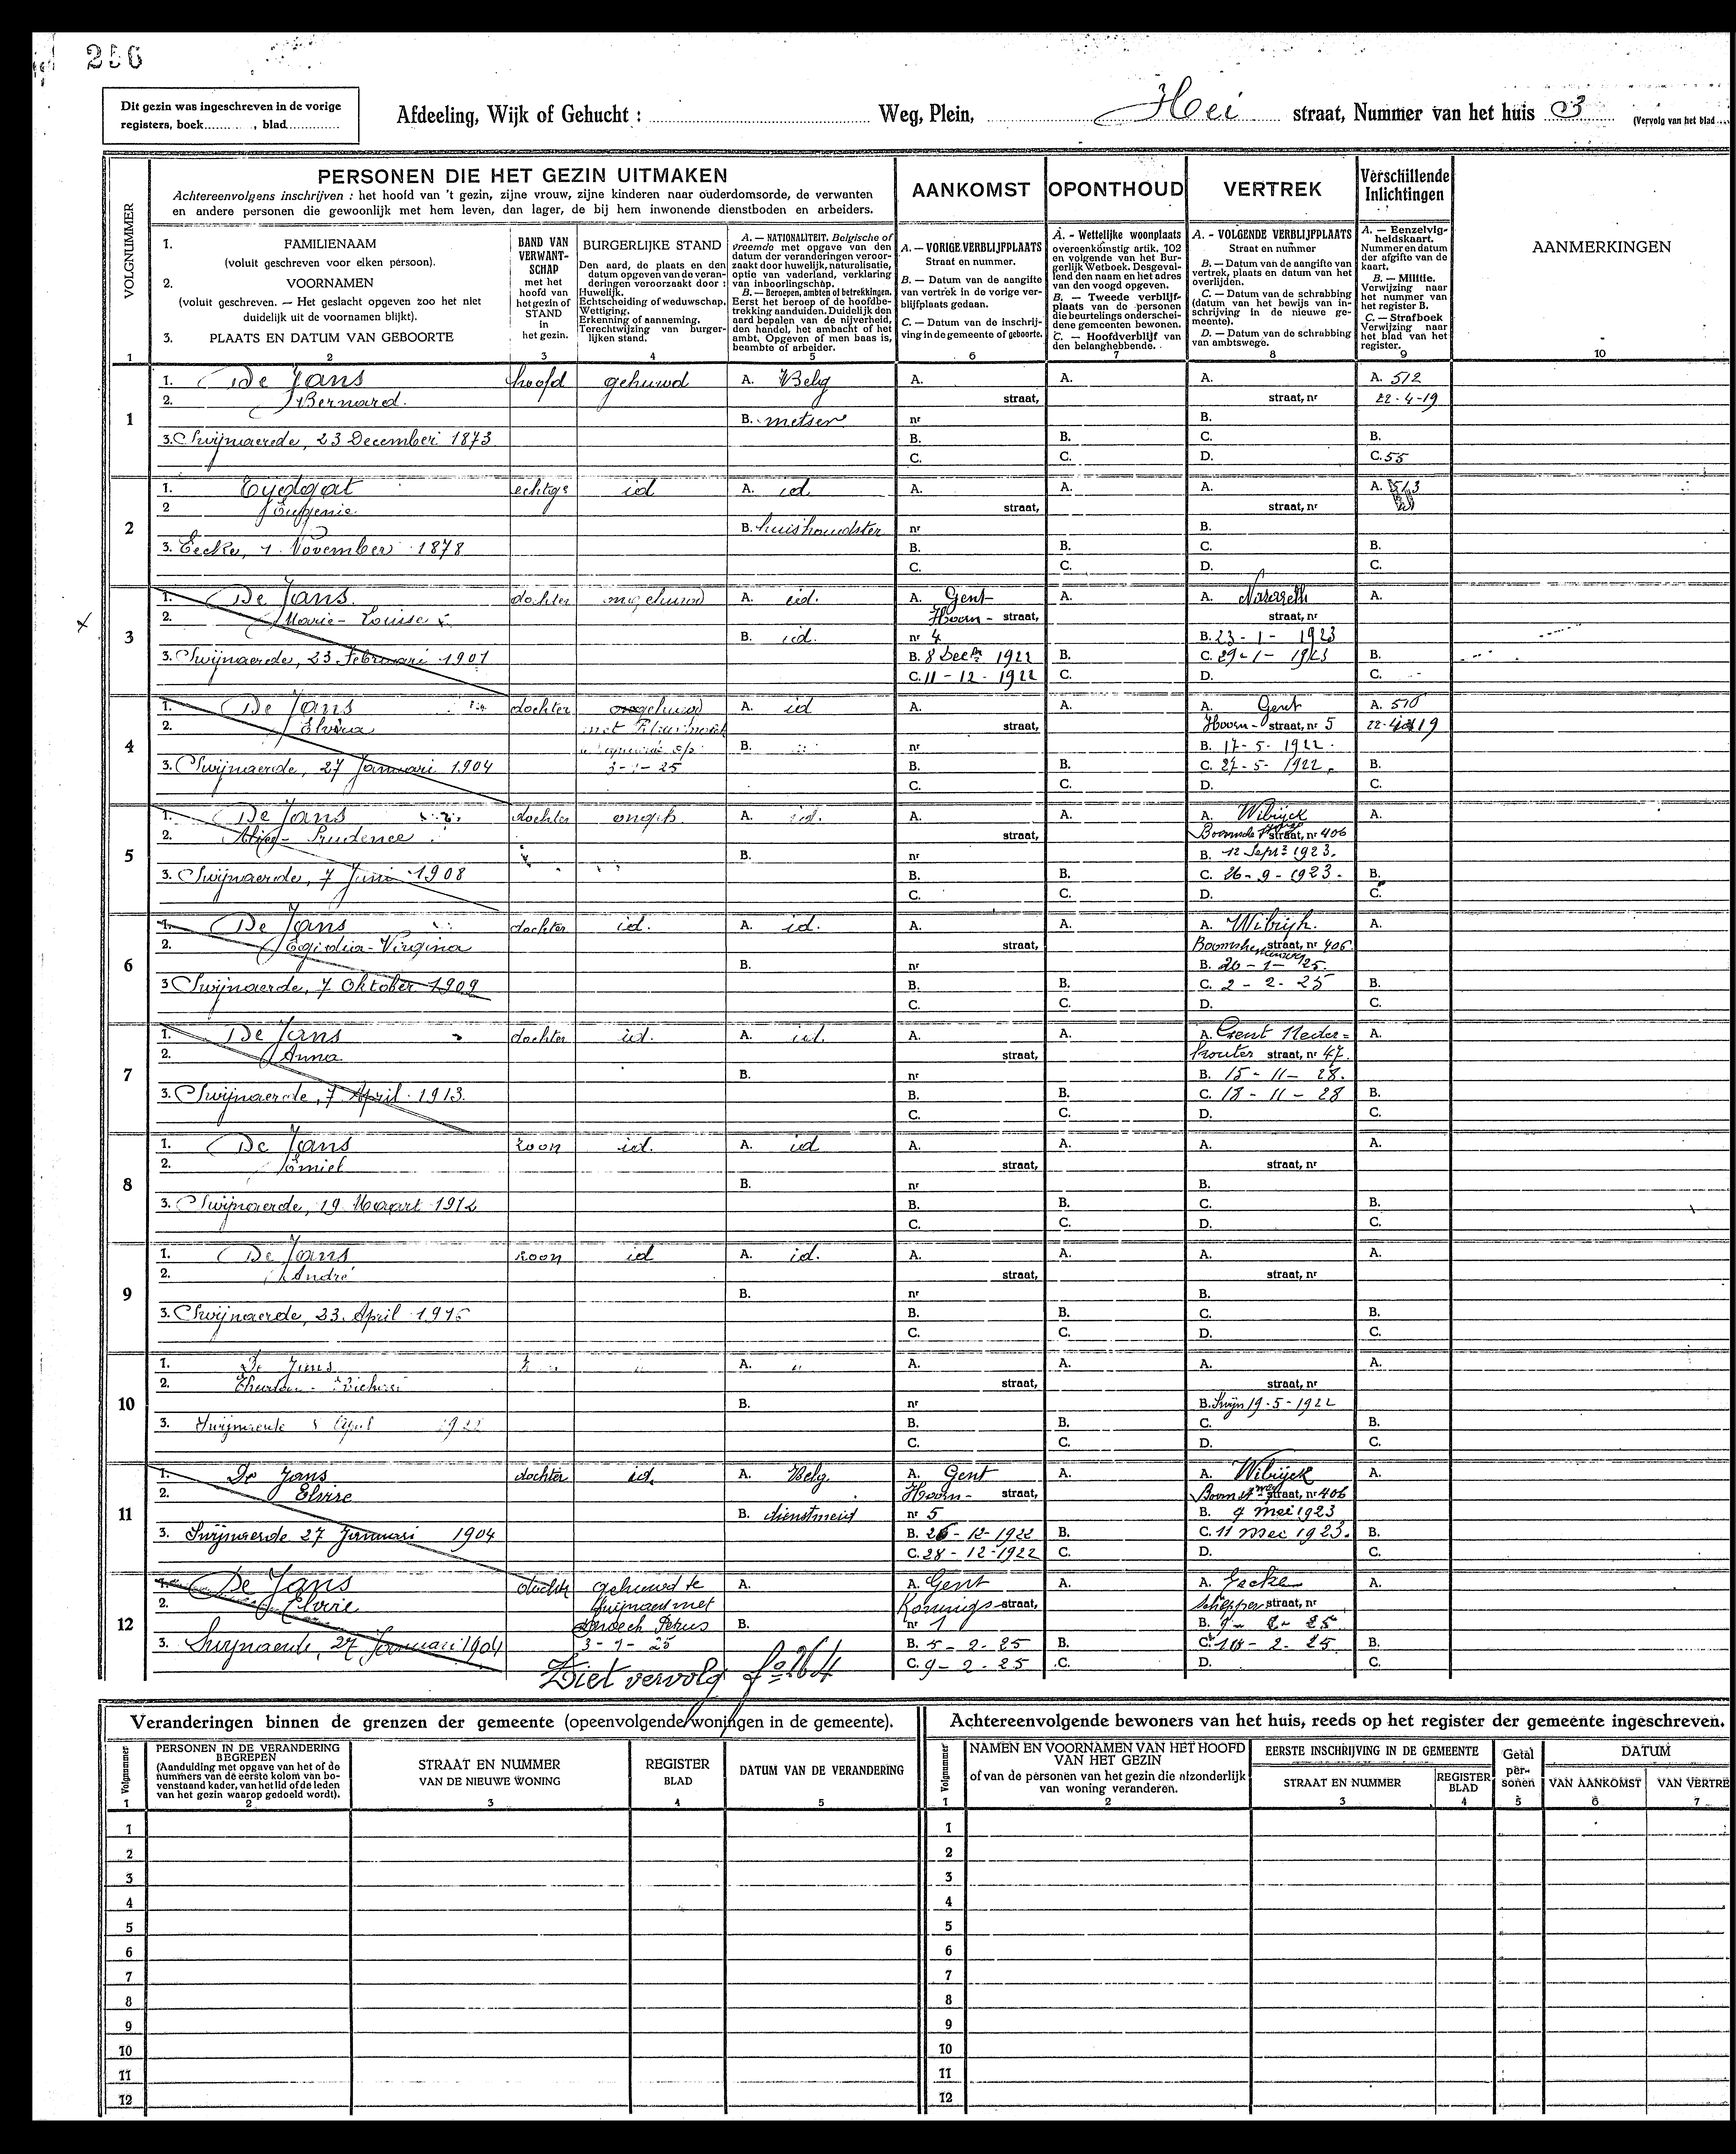 256
Dit gezin was ingeschreven in de vorige
registers, boek........., blad.............
Afdeeling, Wijk of Gehucht : Weg, Plein, Hei straat, Nummer van het huis 3 (Vervolg van het blad
VOLGNUMMER
PERSONEN DIE HET GEZIN UITMAKEN
Achtereenvolgens inschrijven : het hoofd van 't gezin, zijne vrouw, zijne kinderen naar ouderdomsorde, de verwanten
en andere personen die gewoonlijk met hem leven, dan lager, de bij hem inwonende dienstboden en arbeiders.
AANKOMST
OPONTHOUD
VERTREK
Verschillende
Inlichtingen
1. FAMILIENAAM
(voluit geschreven voor elken persoon).
2. VOORNAMEN
(voluit geschreven. — Het geslacht opgeven zoo het niet
duidelijk uit de voornamen blijkt).
3. PLAATS EN DATUM VAN GEBOORTE
BAND VAN
VERWANT-
SCHAP
met het
hoofd van
het gezin of
STAND
in
het gezin.
BURGERLIJKE STAND
Den aard, de plaats en den
datum opgeven van de veran-
deringen veroorzaakt door :
Huwelijk.
Echtscheiding of weduwschap.
Wettiging.
Erkenning of aanneming.
Terechtwijzing van burger-
lijken stand.
A. — NATIONALITEIT. Belgische of
vreemde met opgave van den
datum der veranderingen veroor-
zaakt door huwelijk, naturalisatie,
optie van vaderland, verklaring
van inboorlingschap.
B. — Beroepen, ambten of betrekkingen.
Eerst het beroep of de hoofdbe-
trekking aanduiden. Duidelijk den
aard bepalen van de nijverheid,
den handel, het ambacht of het
ambt. Opgeven of men baas is,
beambte of arbeider.
A. — VORIGE VERBLIJFPLAATS
Straat en nummer.
B. — Datum van de aangifte
van vertrek in de vorige ver-
blijfplaats gedaan.
C. — Datum van de inschrij-
ving in de gemeente of geboorte.
A. - Wettelijke woonplaats
overeenkomstig artik. 102
en volgende van het Bur-
gerlijk Wetboek. Desgeval-
lend den naam en het adres
van den voogd opgeven.
B. — Tweede verblijf-
plaats van de personen
die beurtelings onderschei-
dene gemeenten bewonen.
C. — Hoofdverblijf van
den belanghebbende.
A. - VOLGENDE VERBLIJFPLAATS
Straat en nummer
B. — Datum van de aangifte van
vertrek, plaats en datum van het
overlijden.
C. — Datum van de schrabbing
(datum van het bewijs van in-
schrijving in de nieuwe ge-
meente).
D. — Datum van de schrabbing
van ambtswege.
A. — Eenzelvig-
heidskaart.
Nummer en datum
der afgifte van de
kaart.
B. — Militie.
Verwijzing naar
het nummer van
het register B.
C. — Strafboek
Verwijzing naar
het blad van het
register.
AANMERKINGEN
1 2 3 4 5 6 7 8 9 10
1
1. De Jans hoofd gehuwd A. Belg A. A. A. A. 512
2. Bernard. straat, straat, nr 22-4-19
B. metser nr B.
3. Swijnaerde, 23 December 1873 B. B. C. B.
C. C. D. C. 55
2
1. Eydgat echtge id A. id A. A. A. A. 513
2 Eugenie straat, straat, nr
B. huishoudster nr B.
3. Eecke, 1 November 1878 B. B. C. B.
C. C. D. C.
3
1. De Jans dochter ongehuwd A. id. A. Gent A. A. Nazareth A.
2. Marie-Louise Hoorn- straat, straat, nr
B. id. nr 4 B. 23-1-1923
3. Swijnaerde, 23 Februari 1901 B. 8 Decbr 1922 B. C. 29-1-1923 B.
C. 11-12-1922 C. D. C.
4
1. De Jans dochter ongehuwd A. id A. A. A. Gent A. 510
2. Elvira met straat, Hoorn- straat, nr 5 22-4-19
B. nr B. 17-5-1922.
3. Swijnaerde, 27 Januari 1904 3-1-25 B. B. C. 27-5-1922. B.
C. C. D. C.
5
1. De Jans dochter ongeh A. id. A. A. A. Wibrijck A.
2. Prudence straat, straat, nr 406
B. nr B. 12 Sept 1923.
3. Swijnaerde, 7 Juni 1908 B. B. C. 26-9-1923. B.
C. C. D. C.
6
1. De Jans dochter id. A. id. A. A. A. Wibrijk. A.
2. Egidia-Virgina straat, straat, nr 406
B. nr B. 26-1-25.
3 Swijnaerde, 7 Oktober 1909 B. B. C. 2-2-25 B.
C. C. D. C.
7
1. De Jans dochter id. A. id. A. A. A. Gent Neder= A.
2. Anna straat, kouter straat, nr 47.
B. nr B. 15-11-28.
3. Swijnaerde, 7 April 1913. B. B. C. 18-11-28 B.
C. C. D. C.
8
1. De Jans zoon id. A. id A. A. A. A.
2. Emiel straat, straat, nr
B. nr B.
3. Swijnaerde, 19 Maart 1912 B. B. C. B.
C. C. D. C.
9
1. De Jans zoon id A. id. A. A. A. A.
2. André straat, straat, nr
B. nr B.
3. Swijnaerde, 23 April 1916 B. B. C. B.
C. C. D. C.
10
1. De Jans A. " A. A. A. A.
2. straat, straat, nr
B. nr B. Swijn 19-5-1922
3. Swijnaerde April 1922 B. B. C. B.
C. C. D. C.
11
1. De Jans dochter id. A. Belg. A. Gent A. A. Wibrijck A.
2. Elvire Hoorn- straat, straat, nr 406
B. dienstmeid nr 5 B. 9 Mei 1923
3. Swijnaerde 27 Januari 1904 B. 26-12-1922 B. C. 11 Mei 1923. B.
C. 28-12-1922 C. D. C.
12
1. De Jans dochter gehuwd te A. A. Gent A. A. Eecke A.
2. Elvire met Konings- straat, straat, nr
Petrus B. nr 1 B. 25
3. Swijnaerde, 27 Januari 1904 3-1-25 B. 5-2-25 B. C. 2-25 B.
C. 9-2-25 C. D. C.
Ziet vervolg fo 264
Veranderingen binnen de grenzen der gemeente (opeenvolgende woningen in de gemeente).
Volgnummer
PERSONEN IN DE VERANDERING
BEGREPEN
(Aanduiding met opgave van het of de
nummers van de eerste kolom van bo-
venstaand kader, van het lid of de leden
van het gezin waarop gedoeld wordt).
STRAAT EN NUMMER
VAN DE NIEUWE WONING
REGISTER
BLAD
DATUM VAN DE VERANDERING
1 2 3 4 5
1
2
3
4
5
6
7
8
9
10
11
12
Achtereenvolgende bewoners van het huis, reeds op het register der gemeente ingeschreven.
Volgnummer
NAMEN EN VOORNAMEN VAN HET HOOFD
VAN HET GEZIN
of van de personen van het gezin die afzonderlijk
van woning veranderen.
EERSTE INSCHRIJVING IN DE GEMEENTE
STRAAT EN NUMMER
REGISTER
BLAD
Getal
per-
sonen
DATUM
VAN AANKOMST
VAN VERTRE
1 2 3 4 5 6 7
1
2
3
4
5
6
7
8
9
10
11
12